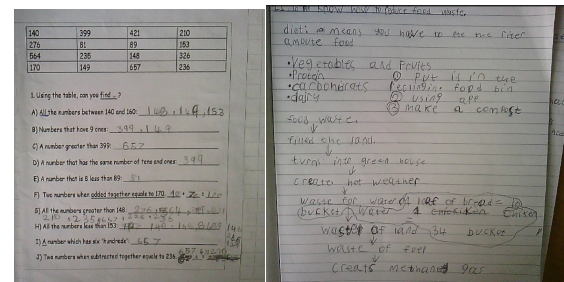 140 399 421 210
276 81 89 153
564 235 148 326
170 149 657 236
1. Using the table, can you find - ?
A) All the numbers between 140 and 160: 148, 149, 153
B) Numbers that have 9 ones: 399, 149
C) A number greater than 399: 657
D) A number that has the same number of tens and ones: 399
E) A number that is 8 less than 89: 81
F) Two numbers when added together equals to 170.
G) All the numbers greater than 148: 276, 564,
210, 235, 657, 326, 236
H) All the numbers less than 153: 140, 148, 81, 89
I) A number which has six 'hundreds': 657
J) Two numbers when subtracted together equals to 236.
to know how to reduce food waste.
diet: means you have to eat the riter
amoute food
•vegetables and fruits
•protan ① put it in the
•carbohdrats recling food bin
•dairy ② using ape
③ make a compost
food waste.
filled the land.
turns into green house
create hot weather
waste for water 1 loaf of bread = 10
buckets Water 1 chicken
waste of land 34 bucket
waste of fuel
creats methane gas